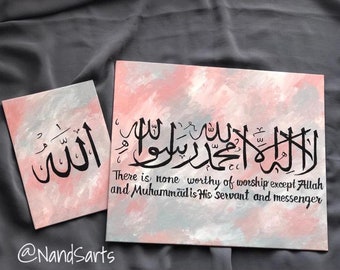 الله
لا إله إلا الله محمد رسول الله
There is none worthy of worship except Allah
and Muhammad is His servant and messenger
@NandSarts